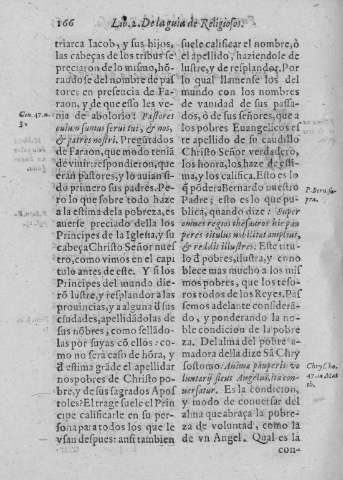 166 Lib.2. De la guia de Religiosos.
triarca Iacob, y sus hijos,
las cabeças de los tribus se
preciaron de lo mismo, hō
raudose del nombre de pas
tores: en presencia de Fa-
raon, y de que esso les ve-
nia de abolorio: Pastores
ouium sumus serui tui, & nos,
& patres nostri. Preguntados
de Faraon, que modo teniā
de viuir: respondieron, que
eran pastores, y lo auian si-
do primero sus padres. Pe-
ro lo que sobre todo haze
a la estima dela pobreza, es
auerse preciado della los
Principes de la Iglesia, y su
cabeça Christo Señor nues
tro, como vimos en el capi
tulo antes de este. Y si los
Principes del mundo die-
rō lustre, y resplandor a las
prouincias, y a alguna d̄ sus
ciudades, apellidādolas de
sus nōbres, como sellādo-
las por suyas cō ellos: co-
mo no será caso de hōra, y
d̄ estima grāde el apellidar
nos pobres de Christo po-
bre, y de sus sagrados Apos
toles? El trage suele el Prin
cipe calificarle en su per-
sona para todos los que le
vsan despues: ansi tambien
suele calificar el nombre, ò
el apellido, haziendole de
lustre, y de resplandor. Por
lo qual llamense los del
mundo con los nombres
de vanidad de sus passa-
dos, ò de sus señores, que a
los pobres Euangelicos es
te apellido de su caudillo
Christo Señor verdadero,
los honra, los haze de esti-
ma, y los califica. Esto es lo
q̄ pōdera Bernardo nuestro
Padre; esto es lo que pu-
blica, quando dize: Super
omnes reges thesauros hic pau
peres titulus nobilitat amplius,
& reddit illustres. Este titu-
lo d̄ pobres, ilustra, y eno
blece mas mucho a los mis
mos pobres, que los teso-
ros todos de los Reyes. Pas
semos adelante considerā-
do, y ponderando la no-
ble condicion de la pobre
za. Del alma del pobre a-
madora della dize Sā Chry
sostomo: Anima pauperis vo
luntarij sicut Angelus, ita con-
uersatur. Es la condicion,
y modo de conuersar del
alma que abraça la pobre-
za de voluntad, como la
de vn Angel. Qual es là
con-
Gen. 47. n.
3.
P. Bern. su-
pra.
Chrys. ho.
47. in Mat
th.